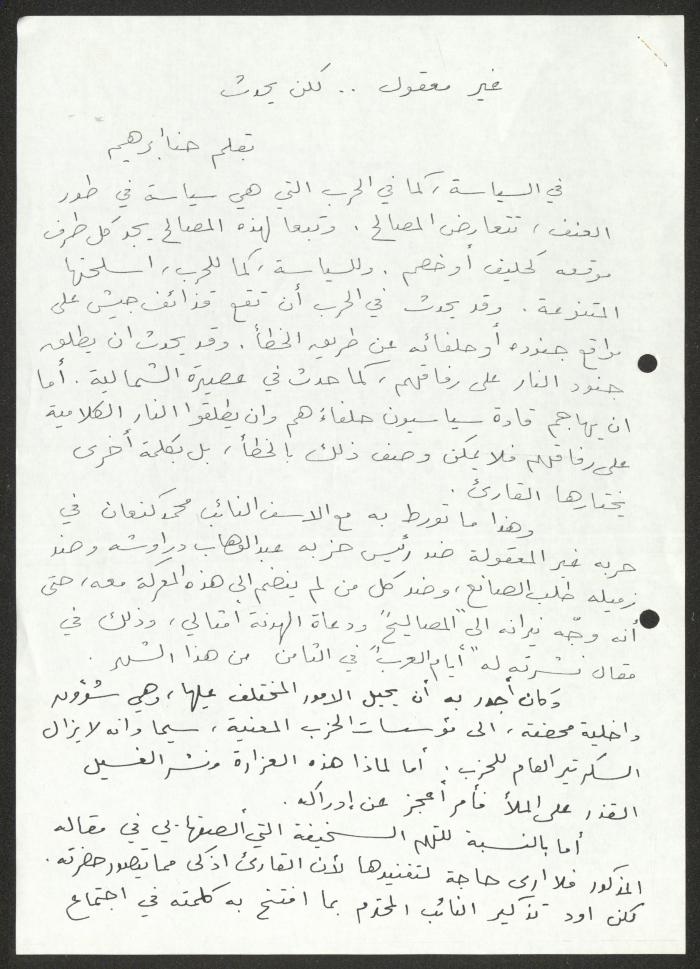 غير معقول .. لكن يحدث
بقلم حنا ابرهيم
في السياسة ، كما في الحرب التي هي سياسة في طور
العنف ، تتعارض المصالح . وتبعا لهذه المصالح يجد كل طرف
موقعه كحليف أو خصم . وللسياسة ، كما للحرب ، اسلحتها
المتنوعة . وقد يحدث في الحرب أن تقع قذائف جيش على
مواقع جنوده أو حلفائه عن طريق الخطأ . وقد يحدث ان يطلق
جنود النار على رفاقهم ، كما حدث في عصيرة الشمالية . أما
ان يهاجم قادة سياسيون حلفاءهم وان يطلقوا النار الكلامية
على رفاقهم فلا يمكن وصف ذلك بالخطأ ، بل بكلمة أخرى
يختارها القارئ .
وهذا ما تورط به مع الاسف النائب محمد كنعان في
حربه غير المعقولة ضد رئيس حزبه عبد الوهاب دراوشه وضد
زميله طلب الصانع ، وضد كل من لم ينضم الى هذه المعركة معه ، حتى
أنه وجّه نيرانه الى "المصاليح" ودعاة الهدنة أمثالي ، وذلك في
مقال نشرته له "أيام العرب" في الثامن من هذا الشهر .
وكان أجدر به أن يحيل الامور المختلف عليها ، وهي شؤون
داخلية محضة ، الى مؤسسات الحزب المعنية ، سيما وانه لا يزال
السكرتير العام للحزب . أما لماذا هذه الغزارة ونشر الغسيل
القذر على الملأ فأمر أعجز عن إدراكه .
أما بالنسبة للتهم السخيفة التي ألصقها بي في مقاله
المذكور فلا ارى حاجة لتفنيدها لأن القارئ اذكى مما يتصور حضرته .
لكن اود تذكير النائب المحترم بما افتتح به كلمته في اجتماع